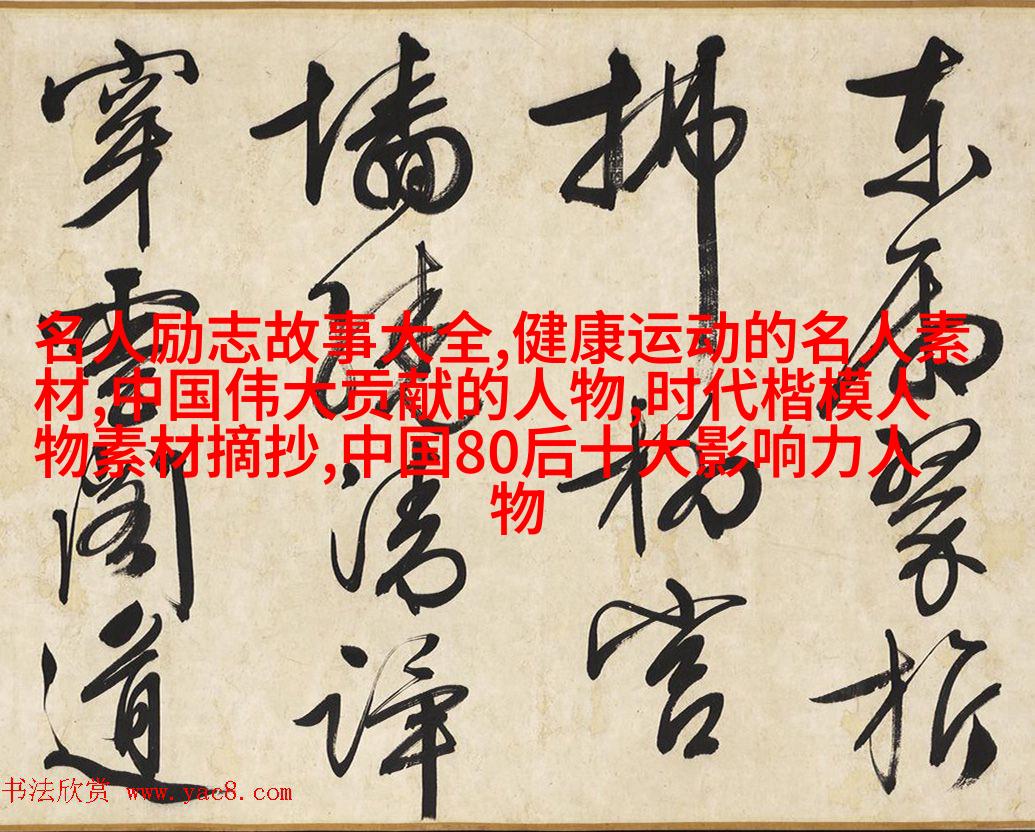 名人励志故事大全,健康运动的名人素
材,中国伟大贡献的人物,时代楷模人
物素材摘抄,中国80后十大影响力人
物
東翠
拂
墻清
穿雲閣道
书法欣赏 www.yac8.com